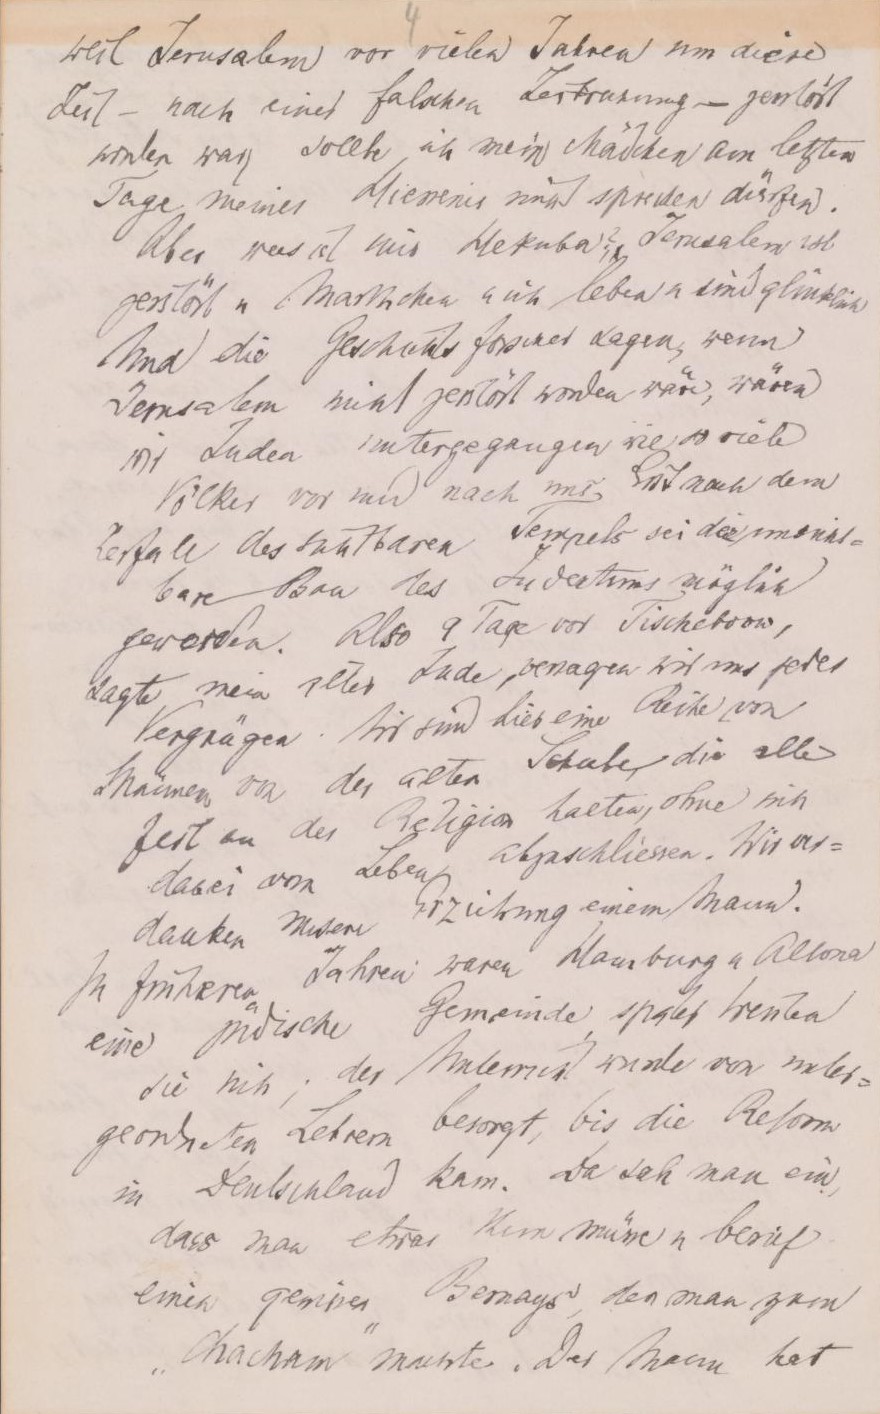 4
weil Jerusalem vor vielen Jahren um diese
Zeit – nach einer falschen Zeitrechnung – zerstört
worden war, sollte ich mein Mädchen am letzten
Tage meines Hierseins nicht sprechen dürfen.
Aber was ist mir Hekuba? Jerusalem ist
zerstört u Marthchen u ich leben u sind glücklich
Und die Geschichtsforscher sagen, wenn
Jerusalem nicht zerstört worden wäre, wären
wir Juden untergegangen wie so viele
Völker vor und nach uns. Erst nach dem
Zerfall des sichtbaren Tempels sei der unsicht=
bare Bau des Judentums möglich
geworden. Also 9 Tage vor Tischeboow,
sagte mein alter Jude, versagen wir uns jedes
Vergnügen. Wir sind hier eine Reihe von
Männern von der alten Schule, die alle
fest an der Religion halten, ohne sich
dabei vom Leben abzuschliessen. Wir ver=
danken unsere Erziehung einem Mann.
In früheren Jahren waren Hamburg u Altona
eine jüdische Gemeinde, später trennten
sie sich; der Unterricht wurde von unter=
geordneten Lehrern besorgt, bis die Reform
in Deutschland kam. Da sah man ein,
dass man etwas thun müsse u berief
einen gewissen Bernays, den man zum
„Chacham" machte. Der Mann hat